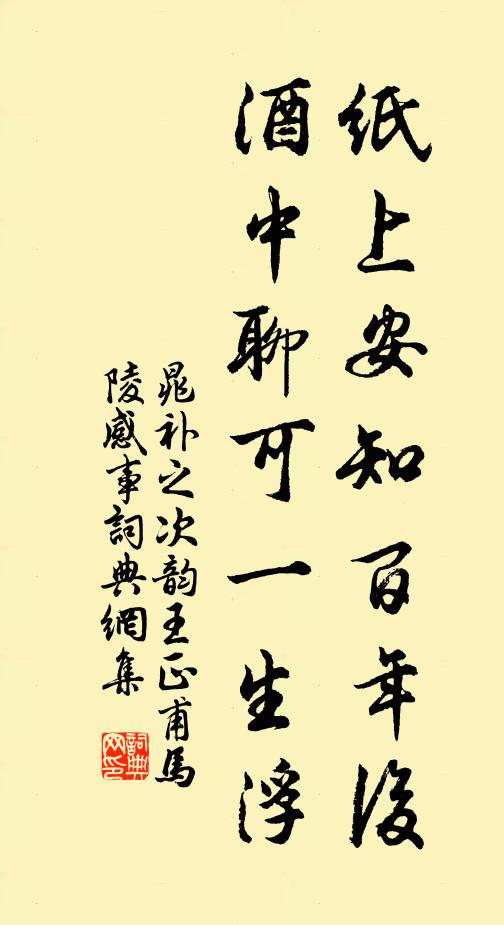 紙上安知百年後
酒中聊可一生浮
晁补之次韵王正甫馬
陵感事詞典網集
詞典
网印